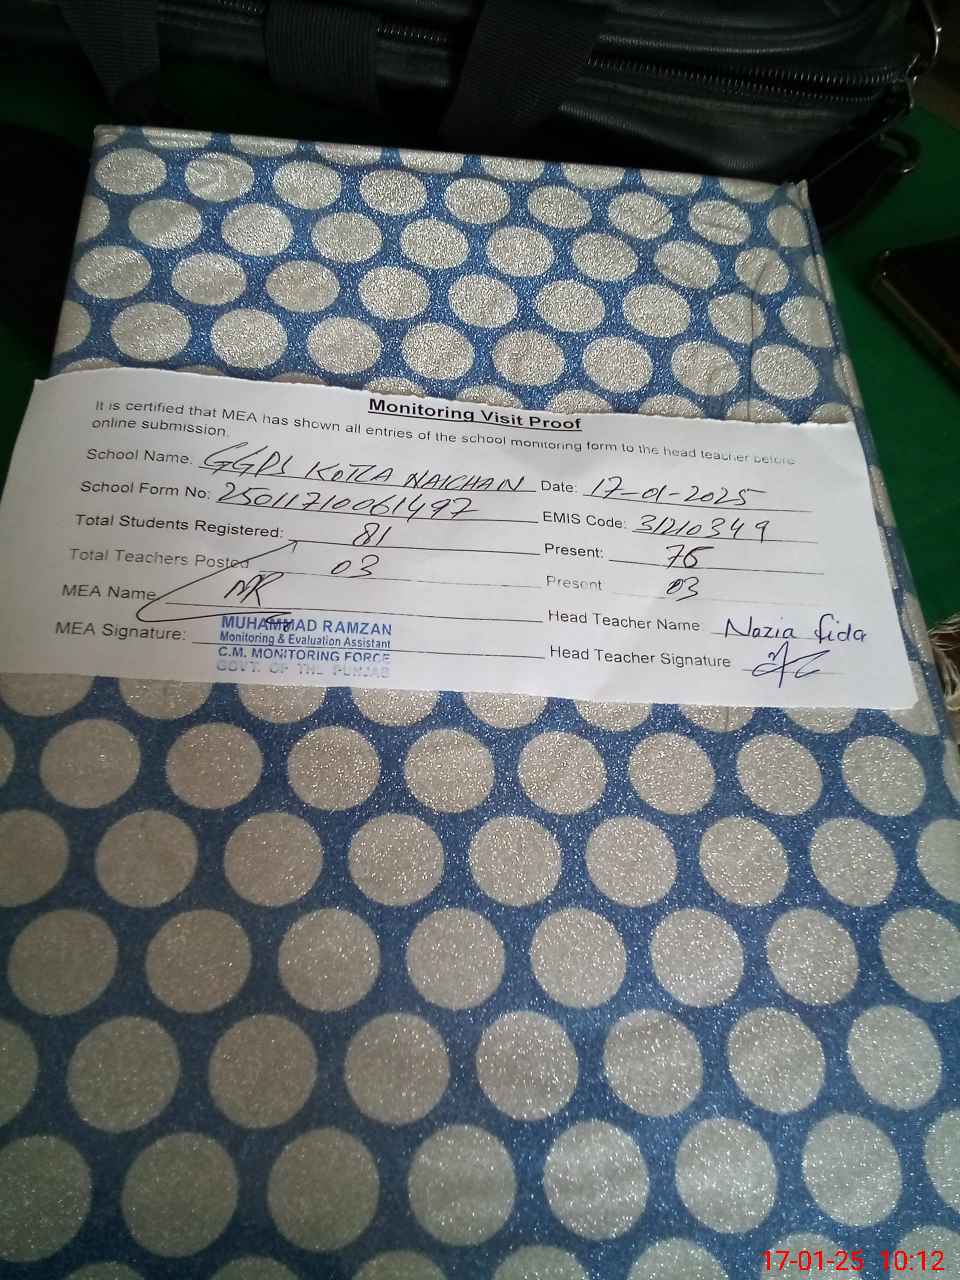 Monitoring Visit Proof
It is certified that MEA has shown all entries of the school monitoring form to the head teacher before
online submission.
School Name. GGPS KOTLA NAICHAN Date: 17-01-2025
School Form No: 25011710061497 EMIS Code: 31210349
Total Students Registered: 81 Present: 76
Total Teachers Posted 03 Present 03
MEA Name MR Head Teacher Name Nazia Fida
MEA Signature: Head Teacher Signature
MUHAMMAD RAMZAN
Monitoring & Evaluation Assistant
C.M. MONITORING FORCE
GOVT. OF THE PUNJAB
17-01-25 10:12